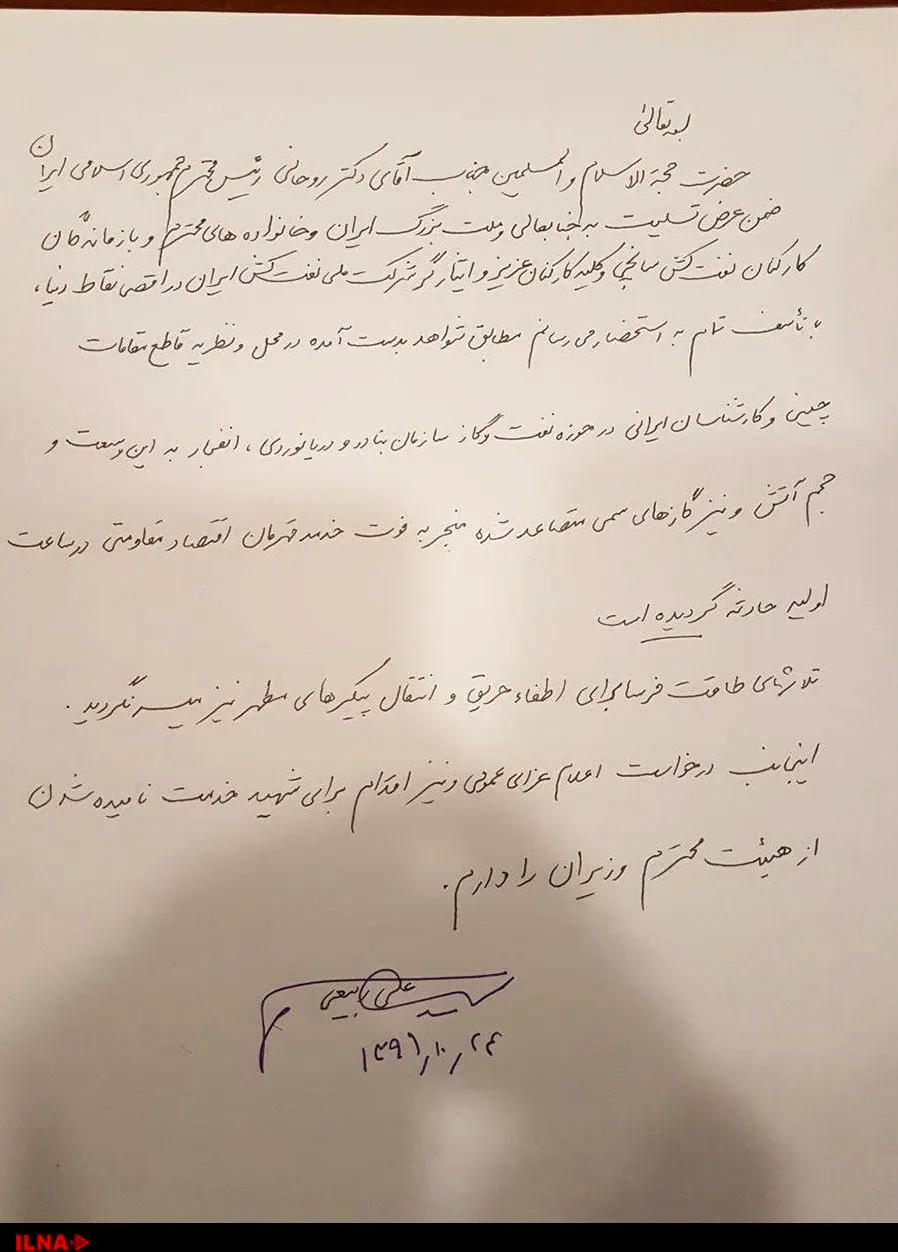 بسمه تعالی
حضرت حجة الاسلام و المسلمین جناب آقای دکتر روحانی رئیس محترم جمهوری اسلامی ایران
ضمن عرض تسلیت به جنابعالی و ملت بزرگ ایران و خانواده های محترم و بازماندگان
کارکنان نفت کش سانچی و کلیه کارکنان عزیز و ایثارگر شرکت ملی نفت کش ایران در اقصی نقاط دنیا،
با تأسف تمام به استحضار می رسانم مطابق شواهد بدست آمده در محل و نظریه قاطع مقامات
چینی و کارشناسان ایرانی در حوزه نفت و گاز سازمان بنادر و دریانوردی، انفجار به این وسعت و
حجم آتش و نیز گازهای سمی متصاعد شده منجر به فوت خدمه قهرمان اقتصاد مقاومتی در ساعت
اولیه حادثه گردیده است
تلاشهای طاقت فرسا برای اطفاء حریق و انتقال پیکرهای مطهر نیز میسر نگردید.
اینجانب درخواست اعلام عزای عمومی و نیز اقدام برای شهید خدمت نامیده شدن
از هیئت محترم وزیران را دارم.
علی ربیعی
۱۳۹۶/۱۰/۲۴
ILNA